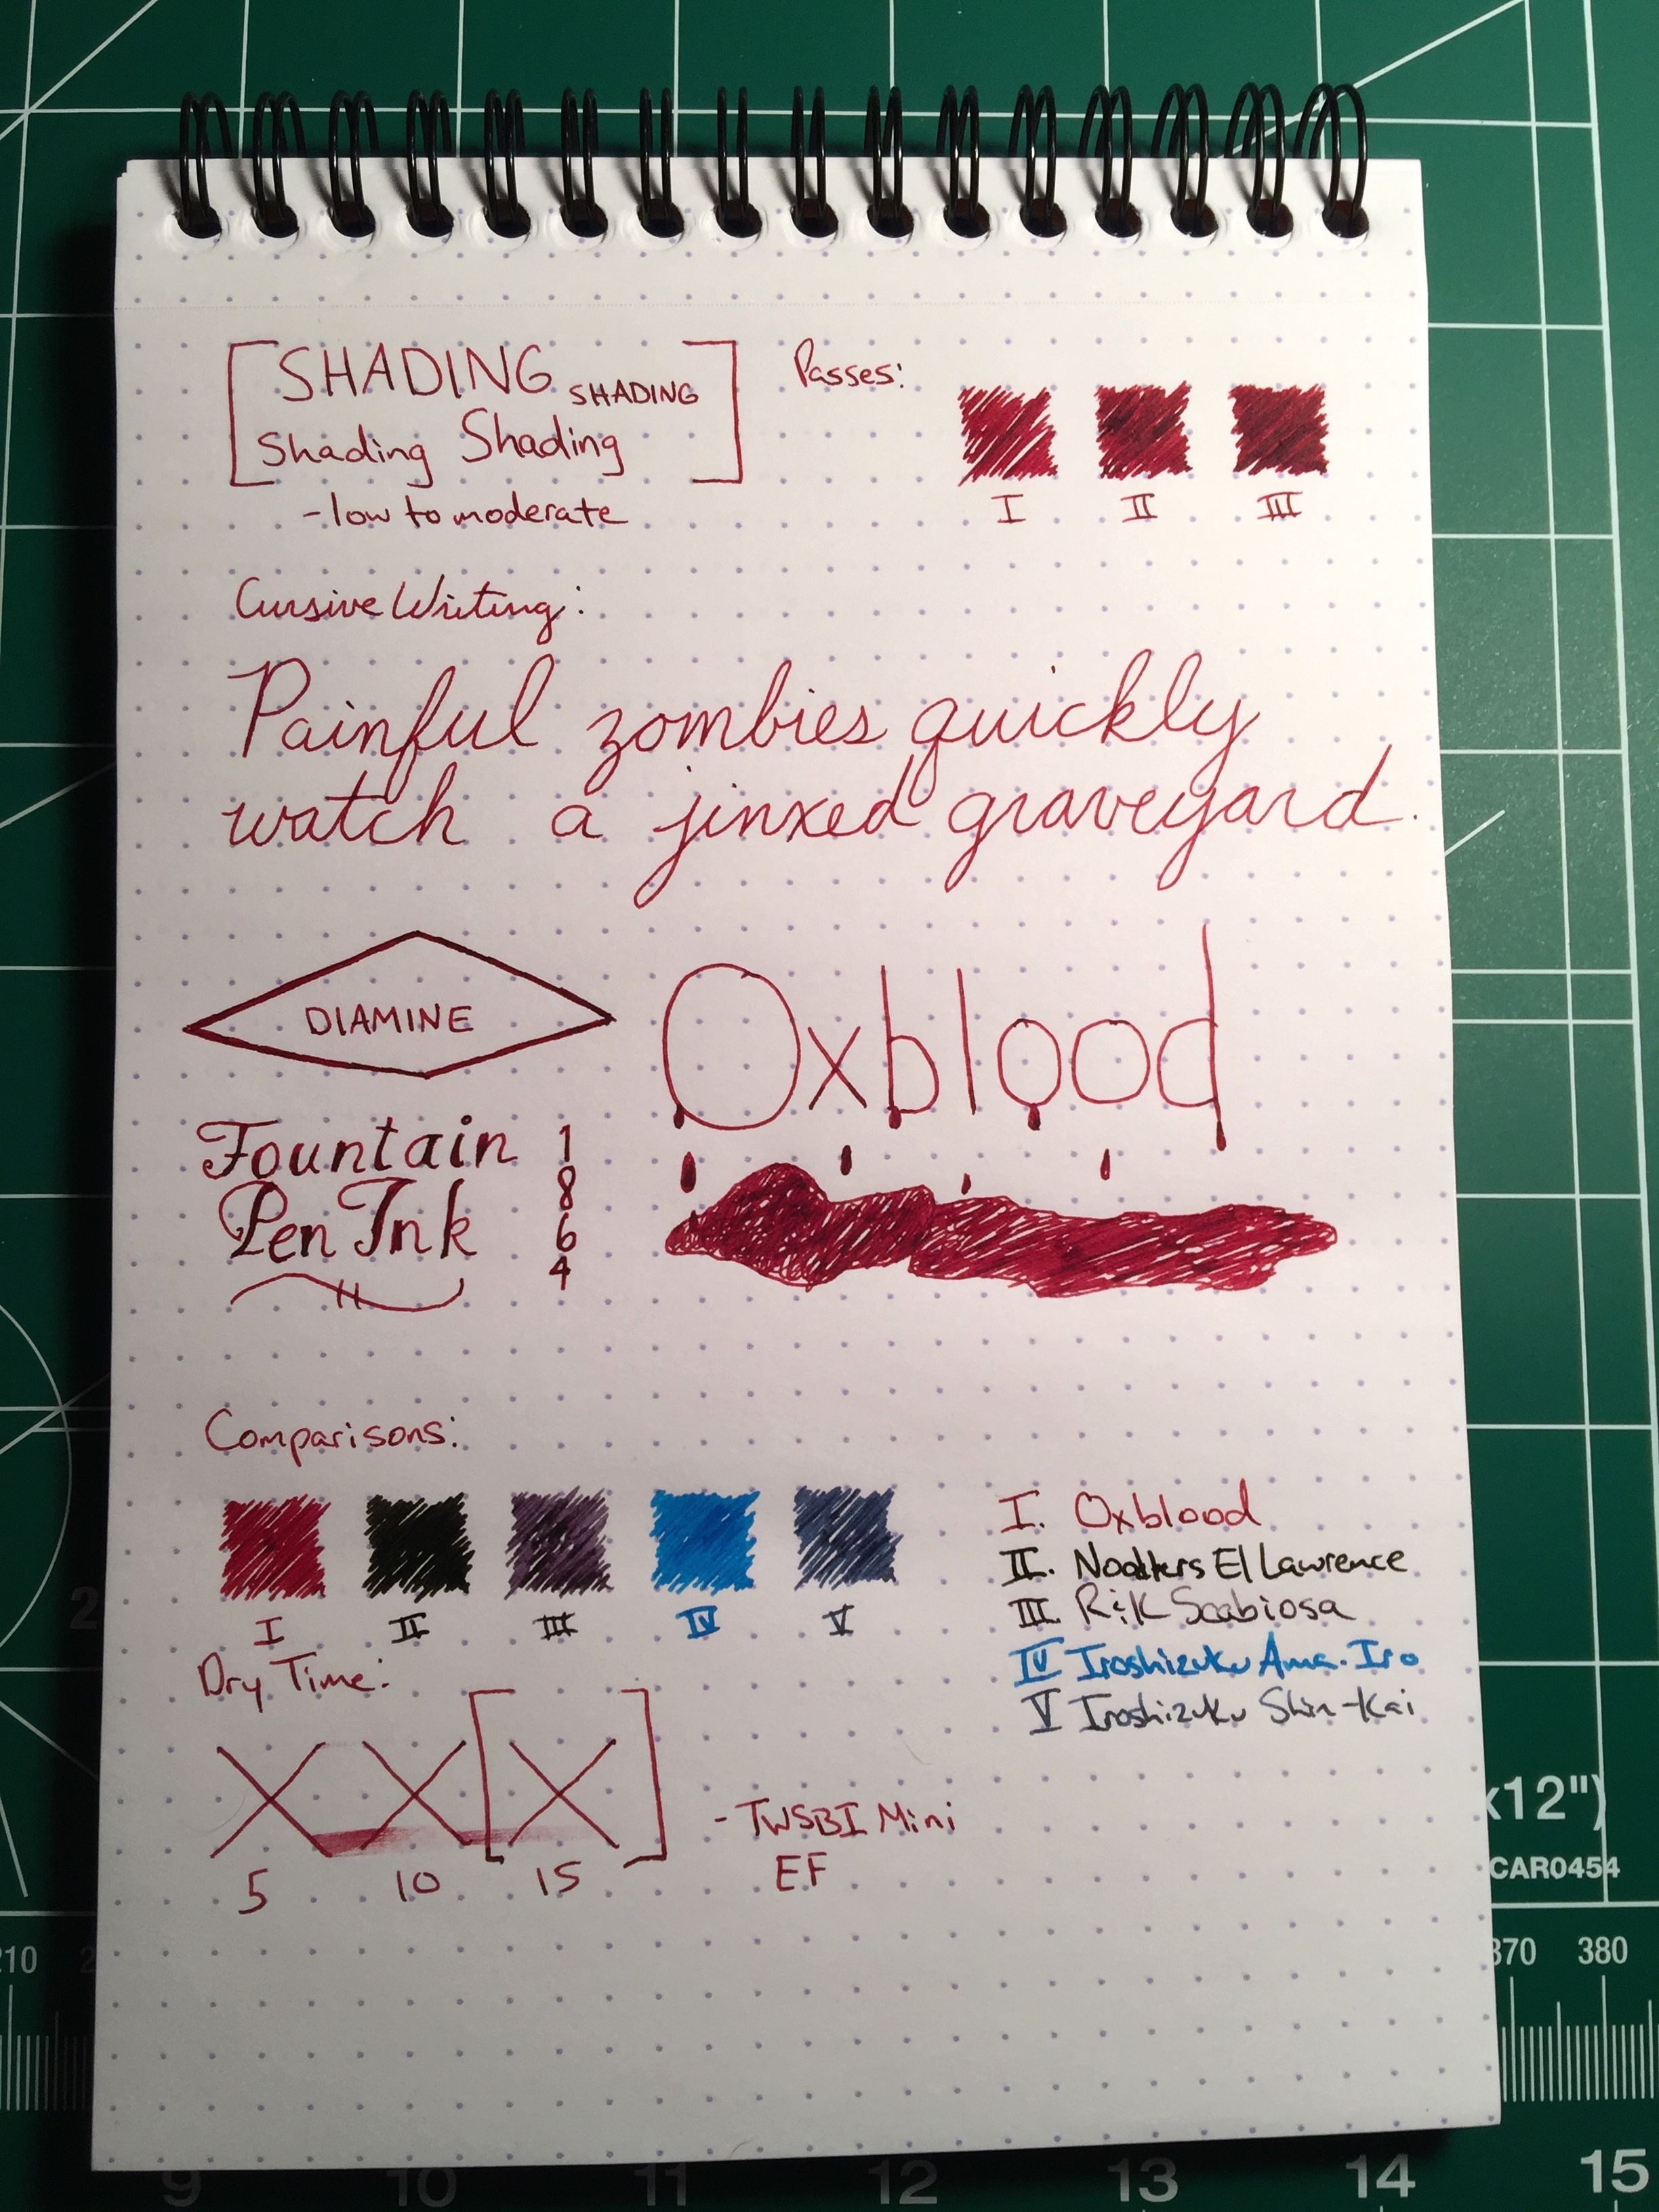 SHADING SHADING
Shading Shading
- low to moderate
Passes:
I II III
Cursive Writing:
Painful zombies quickly
watch a jinxed graveyard.
DIAMINE
Fountain
Pen Ink
1
8
6
4
Oxblood
Comparisons:
I II III IV V
I. Oxblood
II. Noodlers El Lawrence
III. R&K Scabiosa
IV Iroshizuku Ama-Iro
V Iroshizuku Shin-Kai
Dry Time:
X X [X]
5 10 15
- TWSBI Mini
EF
x12")
CAR0454
210
370 380
2
9 10 11 12 13 14 15